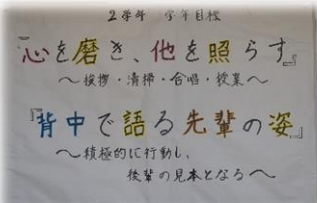 2学年 学年目標
『心を磨き、他を照らす』
～挨拶・清掃・合唱・授業～
『背中で語る先輩の姿』
～積極的に行動し、
後輩の見本となる～